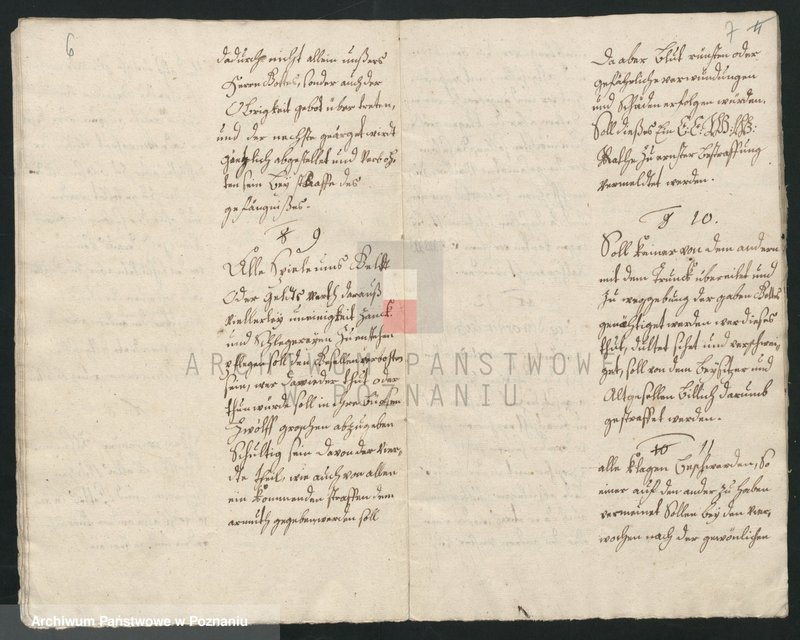 6
dadurch nicht allein unßers
Herren Gottes, sonder auch der
Obrigkeit gebot übertreten,
und der nechste geärget wirdt
gäntzlich abgestellet und verbo
ten sein bey straffe des
gefängnißes.
8 9
Alle Spiele ums Geldt
Oder Geldts werth darauß
vielerley uneinigkeit Zanck
und Schlegereyen zu entstehen
pflegen soll den Gesellen verbotten
sein, wer dawieder thut oder
thun würde soll in ihre Büchsen
Zwölff groschen abzugeben
Schultig sein davon der vier-
dte theil, wie auch von allen
ein kommenden straffen dem
armuth gegeben werden soll
7 4
Da aber blut rünsten oder
gefährliche verwundungen
und Schäden erfolgen würden,
Soll dießes Ein E: E: W: W:
Rathe zu ernster bestraffung
vermeldet werden.
§ 10.
Soll keiner von dem andern
mit dem Trunck übereilet und
zu weggebung der gaben Gottes
genöhtiget werden wer dieses
thut, dultet sihet und verschwei-
get, soll von dem Beysitzer und
Altgesellen billich darumb
gestraffet werden.
10 11
alle klagen beschwerden, so
einer auf den ander zu haben
vermeinet Sollen bey den vier-
wochen nach der gewönlichen
ARCHIWUM PAŃSTWOWE
W POZNANIU
Archiwum Państwowe w Poznaniu